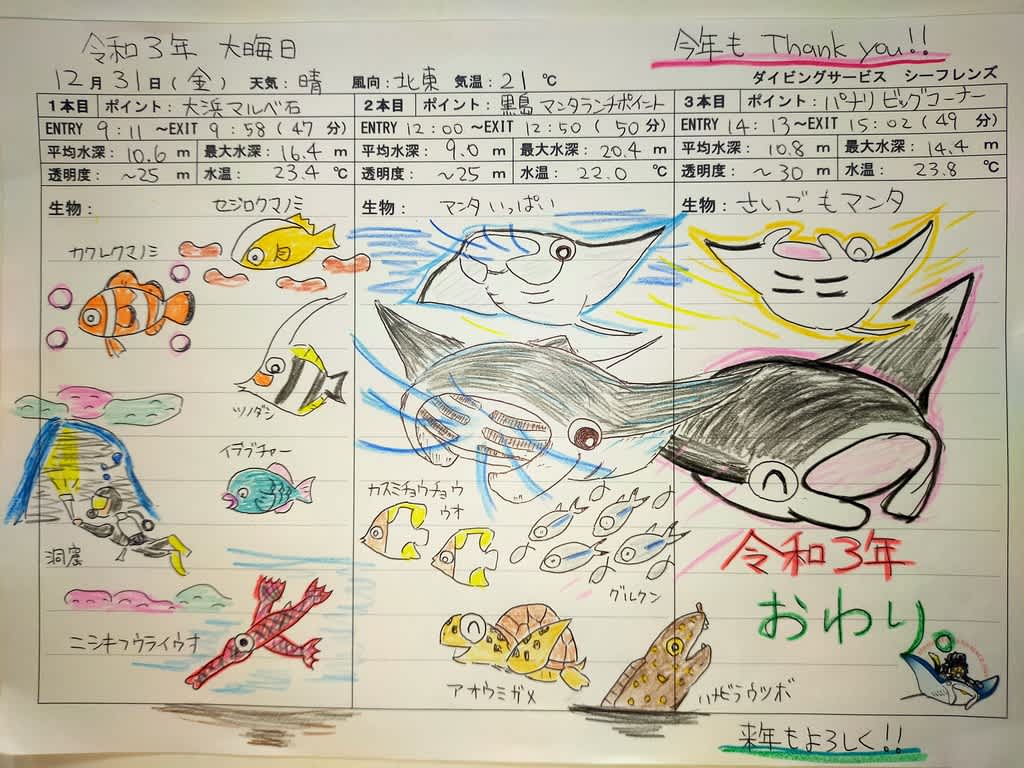 令和3年 大晦日
今年も Thank you!!
12月31日(金) 天気:晴 風向:北東 気温:21℃
ダイビングサービス シーフレンズ
1本目 ポイント:大浜マルベ石
ENTRY 9:11 ~EXIT 9:58(47分)
平均水深:10.6 m 最大水深:16.4 m
透明度:~25 m 水温:23.4 ℃
生物:
セジロクマノミ
カクレクマノミ
ツノダシ
イラブチャー
洞窟
ニシキフウライウオ
2本目 ポイント:黒島マンタランチポイント
ENTRY 12:00 ~EXIT 12:50(50分)
平均水深:9.0 m 最大水深:20.4 m
透明度:~25 m 水温:22.0 ℃
生物: マンタいっぱい
カスミチョウチョウ
ウオ
グルクン
アオウミガメ
3本目 ポイント:パナリ ビッグコーナー
ENTRY 14:13 ~EXIT 15:02(49分)
平均水深:10.8 m 最大水深:14.4 m
透明度:~30 m 水温:23.8 ℃
生物:さいごもマンタ
令和3年
おわり。
ハナビラウツボ
来年もよろしく!!